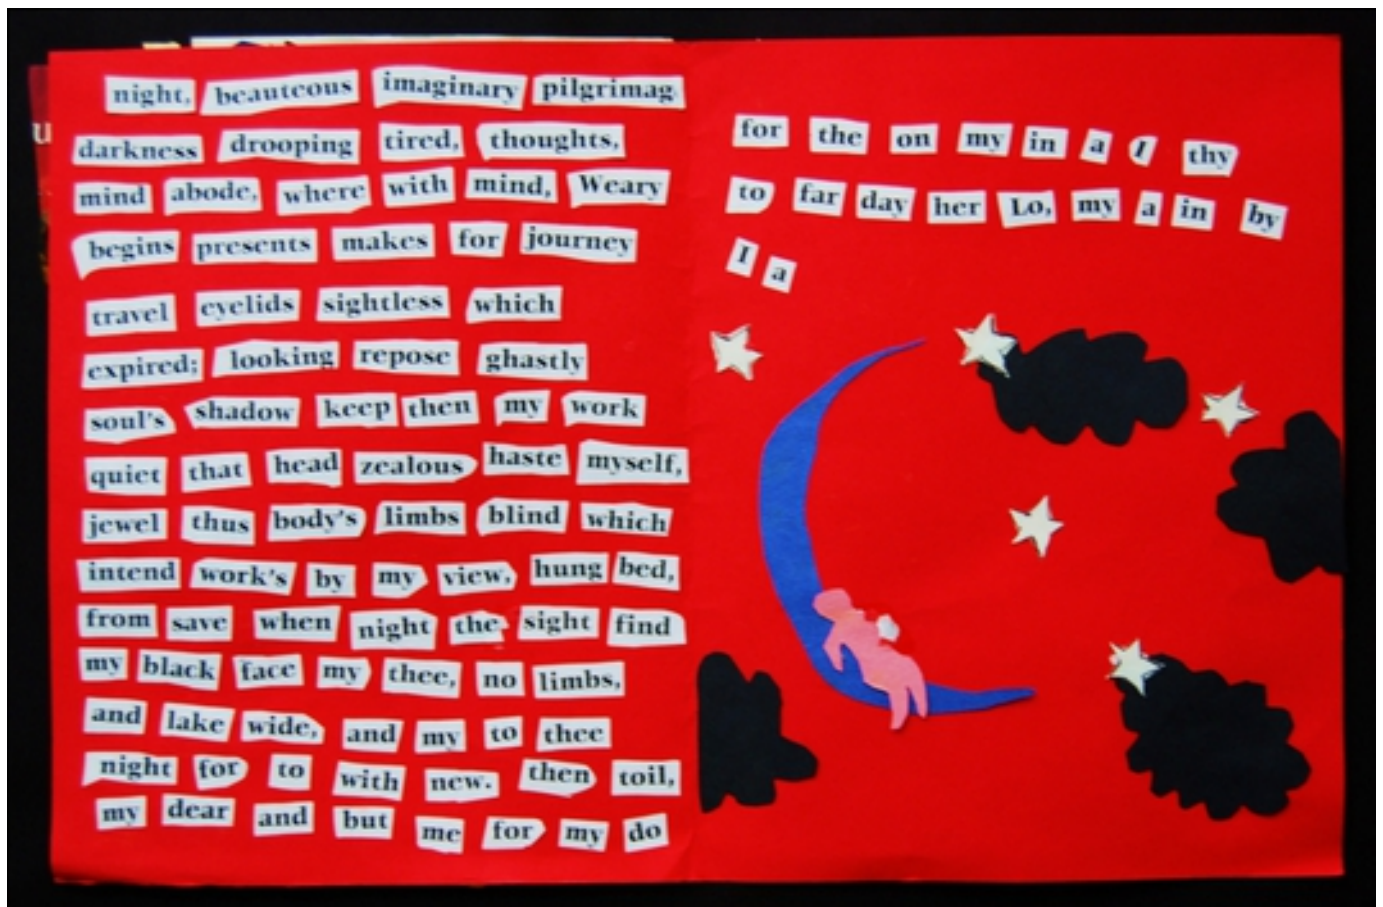 night, beauteous imaginary pilgrimag
darkness drooping tired, thoughts,
mind abode, where with mind, Weary
begins presents makes for journey
travel eyelids sightless which
expired; looking repose ghastly
soul's shadow keep then my work
quiet that head zealous haste myself,
jewel thus body's limbs blind which
intend work's by my view, hung bed,
from save when night the sight find
my black face my thee, no limbs,
and lake wide, and my to thee
night for to with new. then toil,
my dear and but me for my do
for the on my in a I thy
to far day her Lo, my a in by
I a
u